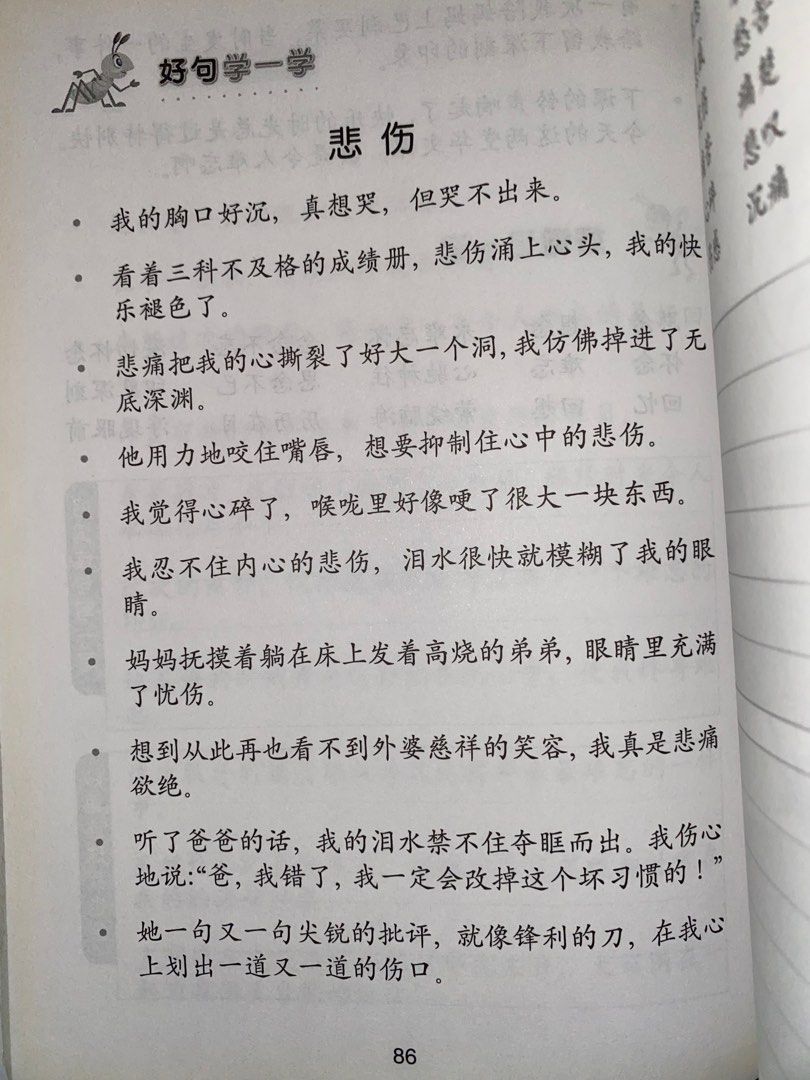 好句学一学
悲伤
• 我的胸口好沉，真想哭，但哭不出来。
• 看着三科不及格的成绩册，悲伤涌上心头，我的快
乐褪色了。
• 悲痛把我的心撕裂了好大一个洞，我仿佛掉进了无
底深渊。
• 他用力地咬住嘴唇，想要抑制住心中的悲伤。
• 我觉得心碎了，喉咙里好像哽了很大一块东西。
• 我忍不住内心的悲伤，泪水很快就模糊了我的眼
睛。
• 妈妈抚摸着躺在床上发着高烧的弟弟，眼睛里充满
了忧伤。
• 想到从此再也看不到外婆慈祥的笑容，我真是悲痛
欲绝。
• 听了爸爸的话，我的泪水禁不住夺眶而出。我伤心
地说:“爸，我错了，我一定会改掉这个坏习惯的！”
• 她一句又一句尖锐的批评，就像锋利的刀，在我心
上划出一道又一道的伤口。
86